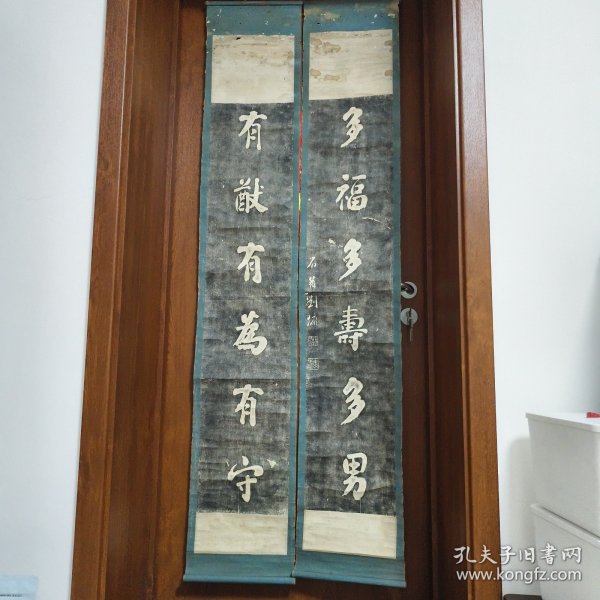 多福多壽多男
石菴劉墉
有猷有為有守
孔夫子旧書网
www.kongfz.com